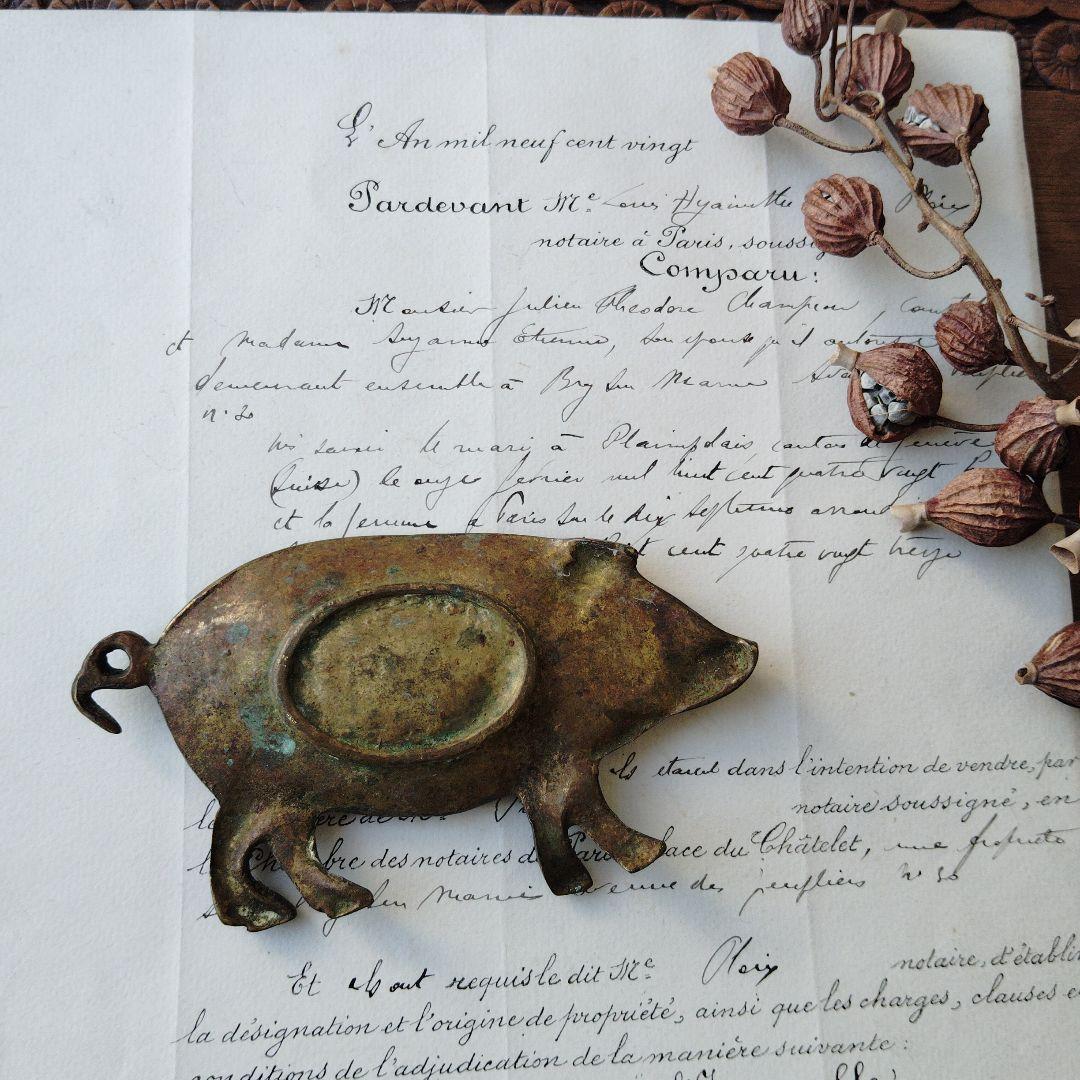 L'An mil neuf cent vingt
Pardevant Me Louis Hyacinthe Ploix
notaire à Paris, soussig
Comparu:
Monsieur Julien Théodore Champion,
et Madame Suzanne Etienne, son épouse qu'il autorise
demeurant ensemble à Bry sur Marne
n° 30
le mari à Plainpalais canton de Genève
(Suisse) le onze février mil huit cent quatre vingt
et la femme à Paris le dix septième arrond
cent quatre vingt treize
ils étaient dans l'intention de vendre, par
notaire soussigné, en
des notaires de Paris, place du Châtelet, une propriété
sur Marne avenue des peupliers n° 30
Et ils ont requis le dit Me Ploix notaire, d'établir
la désignation et l'origine de propriété, ainsi que les charges, clauses e
conditions de l'adjudication de la manière suivante: